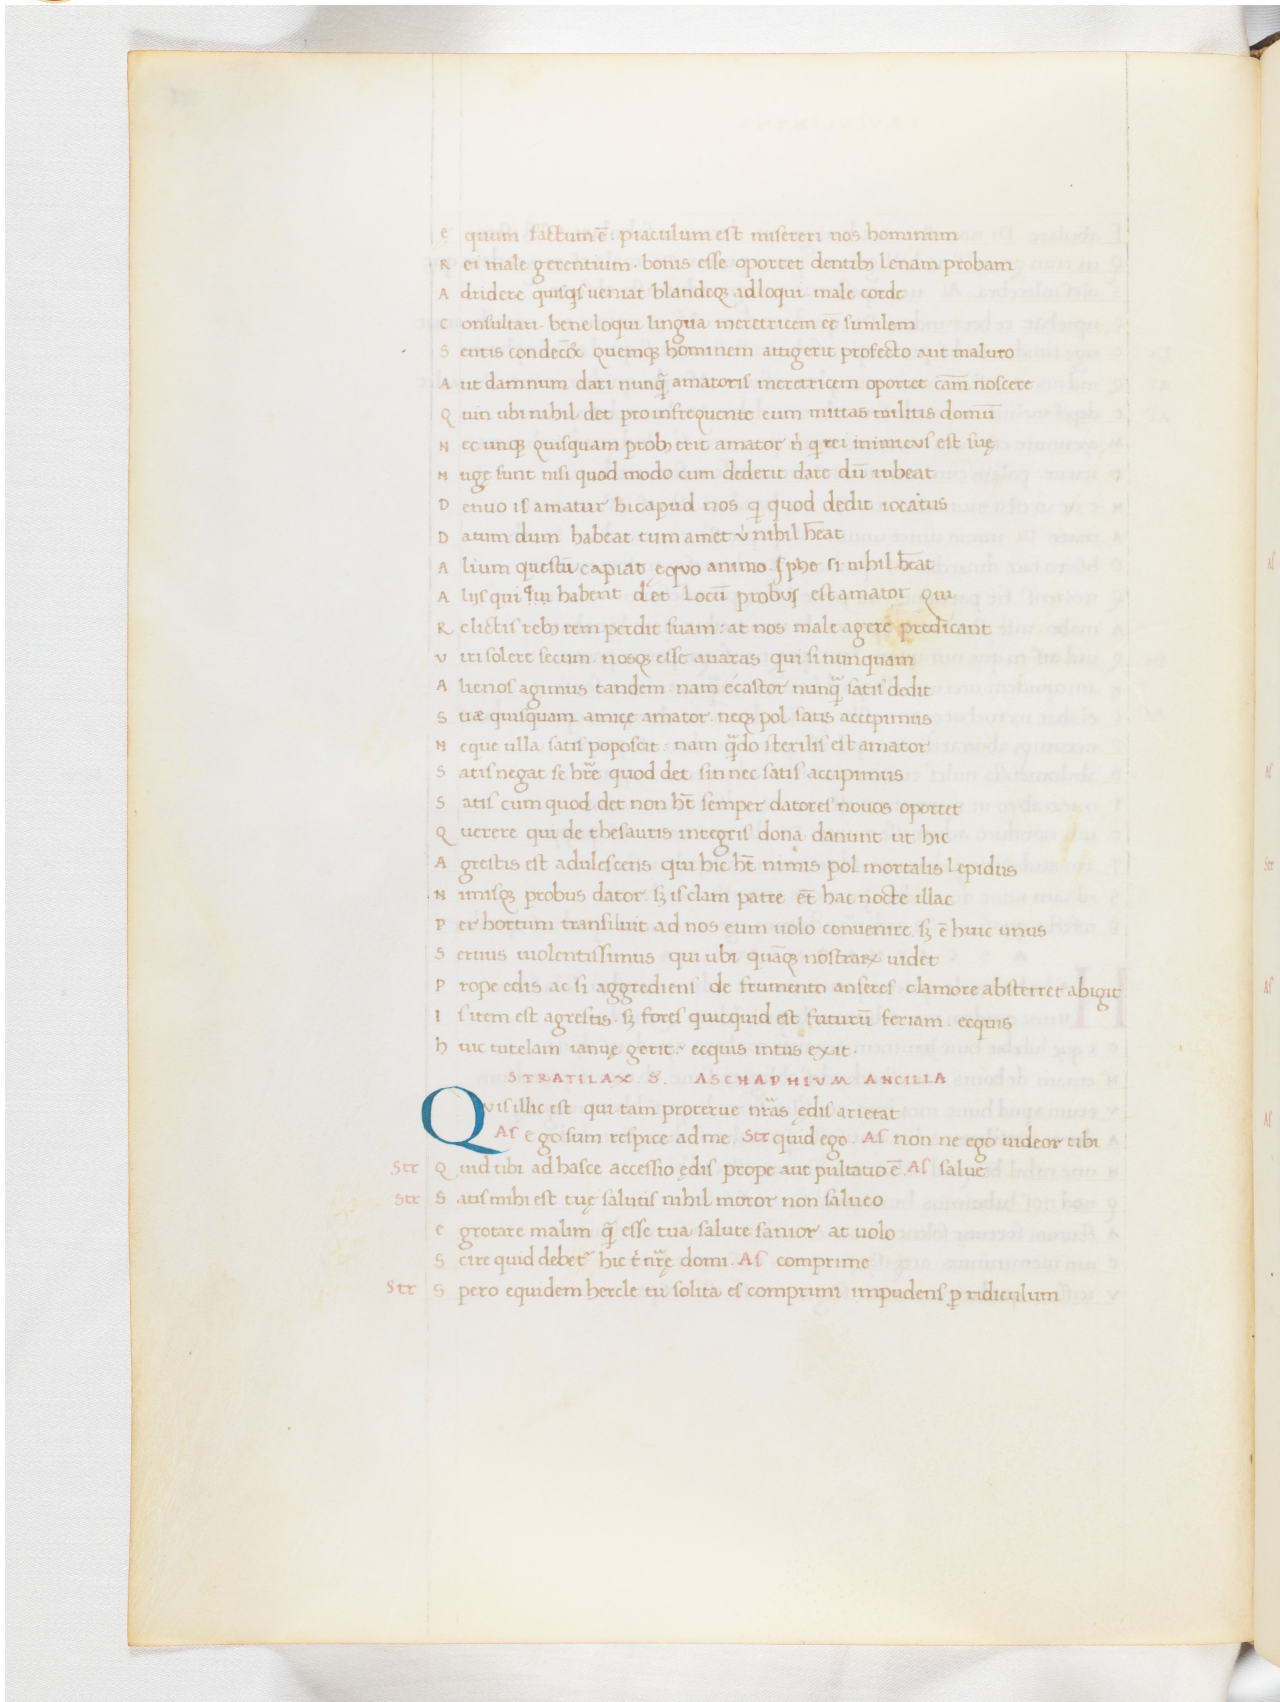 E quum factum ē: piaculum est misereri nos hominum
R ei male gerentium. bonis esse oportet dentibꝫ lenam probam
A dridere quisqs ueniat blandeqꝫ adloqui male corde
C onsultari. bene loqui lingua meretricem eē similem
S entis condecꝫ quemqꝫ hominem attigerit profecto aut maluro
A ut damnum dari nunq̄ amatoris meretricem oportet cām noscere
Q uin ubi nihil det pro infrequente eum mittas militis domū
N ec unqꝫ quisquam probꝫ erit amator n̓ q rei inimicus est suę
N uge sunt nisi quod modo cum dederit dare dū iubeat
D enuo is amatur hic apud nos q quod dedit iocatus
D atum dum habeat tum amet u̓ nihil h̄eat
A lium questū capiat ęquo animo si nihil h̄eat
A lijs qui habent det locū probus est amator qui
R elictis rebꝫ rem perdit suam: at nos male agere predicant
V iri solere secum. nosqꝫ esse auaras qui si nunquam
A lienos agimus tandem nam ecastor nunq̄ satis dedit
S uæ quisquam amicę amator. neqꝫ pol satis accepimus
N eque ulla satis poposcit: nam qn̄do sterilis est amator
S atis negat se hr̄e quod det sin nec satis accipimus
S atis cum quod det non ht̄ semper datores nouos oportet
Q uerere qui de thesauris integris dona danunt ut hic
A grestis est adulescens qui hic ht̄ nimis pol mortalis lepidus
N imisqꝫ probus dator. sꝫ is clam patre et̄ hac nocte illac
P er hortum transiluit ad nos eum uolo conuenire sꝫ ē huic unus
S eruus uiolentissimus qui ubi quāqꝫ nostrarꝝ uidet
P rope edis ac si aggrediens de frumento anseres clamore absterret abigit
I s item est agrestis. sꝫ fores quicquid est futurū feriam. ecquis
H uic tutelam ianuę gerit: ecquis intus exit.
STRATILAX. S. ASCHAPHIVM ANCILLA
Qvis illic est qui tam proterue nr̄as ędis arietat
As ego sum respice ad me. Str quid ego. As non ne ego uideor tibi
Str Q uid tibi ad hasce accessio ędis prope aut pultatio ē. As salue
Str S atis mihi est tuę salutis nihil moror non salueo
E grotare malim q̄ esse tua salute sanior at uolo
S cire quid debet̃ hic t̓ nr̄ę domi. As comprime
Str S pero equidem hercle tu solita es comprimi impudens ꝑ ridiculum